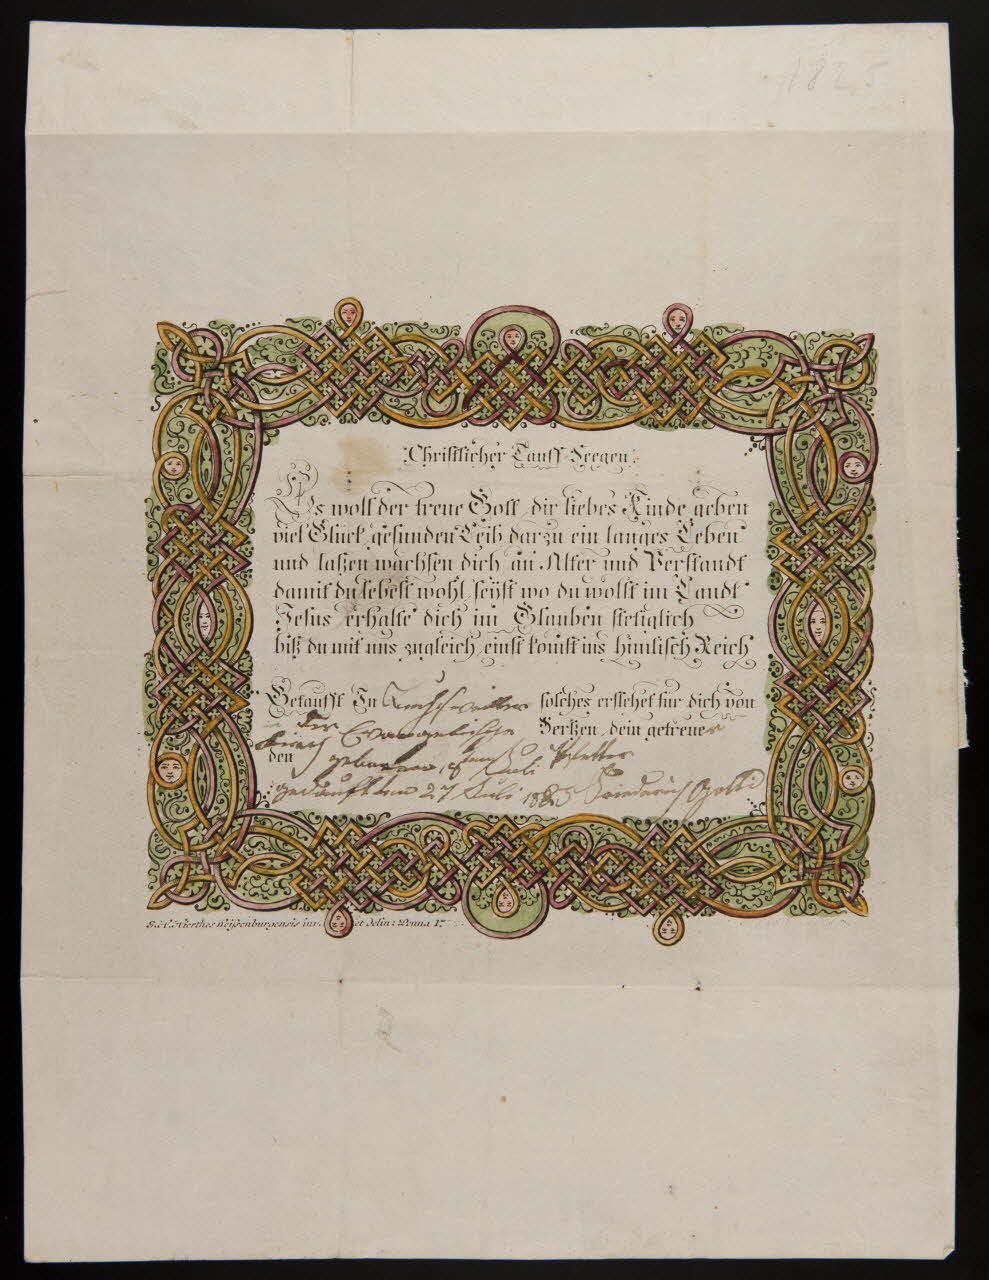 1825
Christlicher Tauff-Seegen
Es woll der treue Gott, dir liebes Kinde geben
viel Glück, gesunden Leib darzu ein langes Leben
und laßen wachsen dich an Alter und Verstandt
damit du lebest wohl, seyst wo du wolst im Landt
Jesus erhalte dich im Glauben stetiglich
biß du mit uns zugleich, einst komst ins himlisch Reich
Getaufft In solches erflehet für dich von
der Evangelische Hertzen, dein getreuer
den gebohren Juli
getauft den 27 Juli 1825
Weißenburgensis inv. et delin: Penna 17